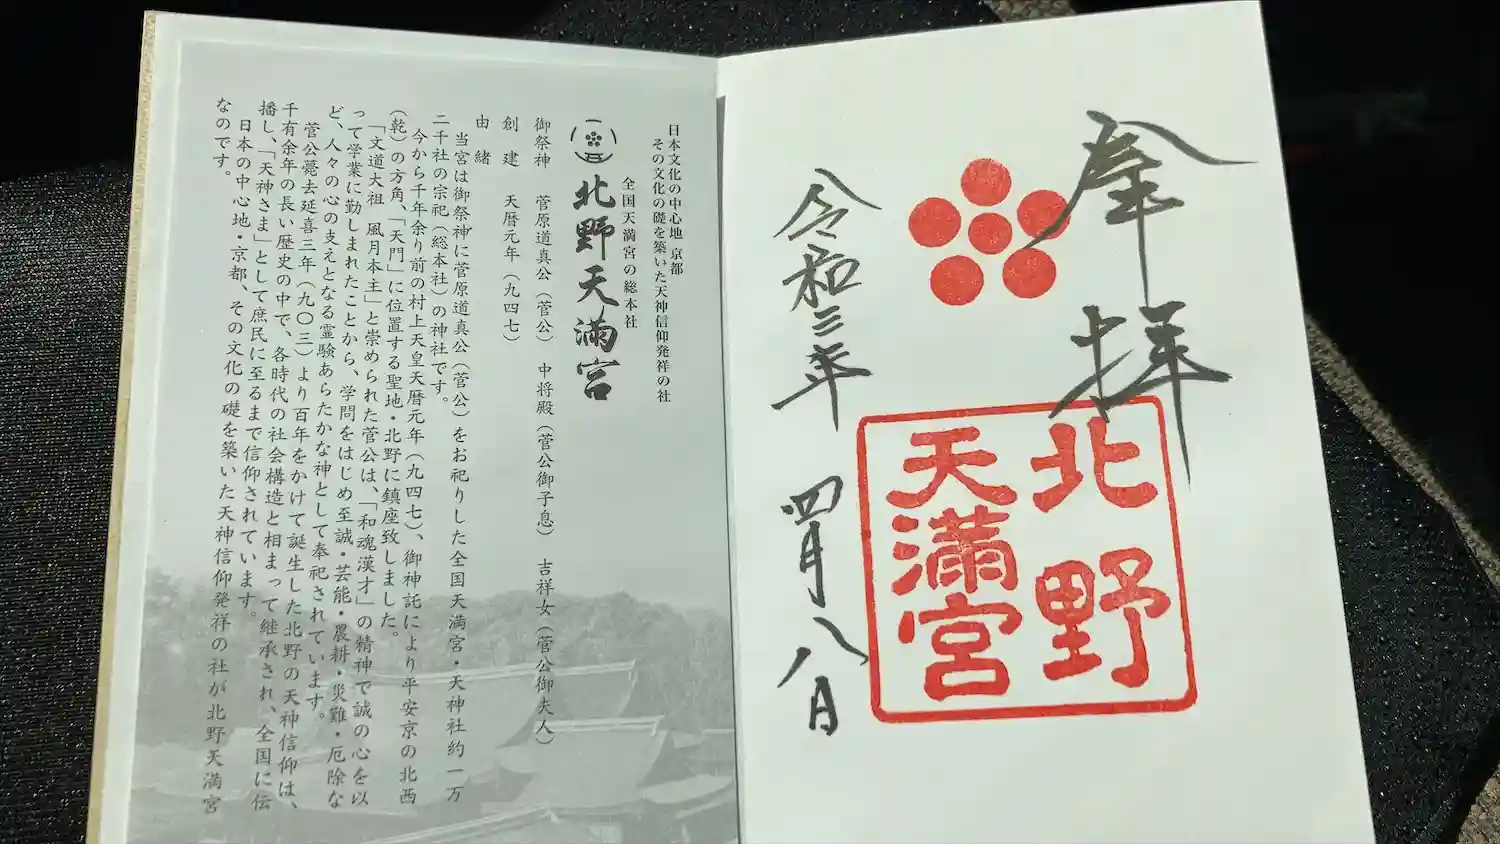 奉拝
北野
天満宮
令和三年 四月八日
日本文化の中心地 京都
その文化の礎を築いた天神信仰発祥の社
全国天満宮の総本社
北野天満宮
御祭神 菅原道真公(菅公) 中将殿(菅公御子息) 吉祥女(菅公御夫人)
創建 天暦元年(九四七)
由緒
当宮は御祭神に菅原道真公(菅公)をお祀りした全国天満宮・天神社約一万
二千社の宗祀(総本社)の神社です。
今から千年余り前の村上天皇天暦元年(九四七)、御神託により平安京の北西
(乾)の方角、「天門」に位置する聖地・北野に鎮座致しました。
「文道大祖 風月本主」と崇められた菅公は、「和魂漢才」の精神で誠の心を以
って学業に勤しまれたことから、学問をはじめ至誠・芸能・農耕・災難・厄除な
ど、人々の心の支えとなる霊験あらたかな神として奉祀されています。
菅公薨去延喜三年(九〇三)より百年をかけて誕生した北野の天神信仰は、
千有余年の長い歴史の中で、各時代の社会構造と相まって継承され、全国に伝
播し、「天神さま」として庶民に至るまで信仰されています。
日本の中心地・京都、その文化の礎を築いた天神信仰発祥の社が北野天満宮
なのです。